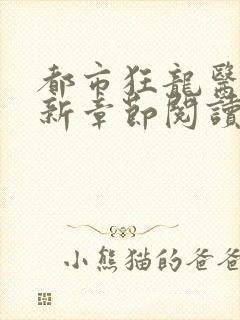 都市狂龍醫
新章節閱讀
小熊猫的爸爸